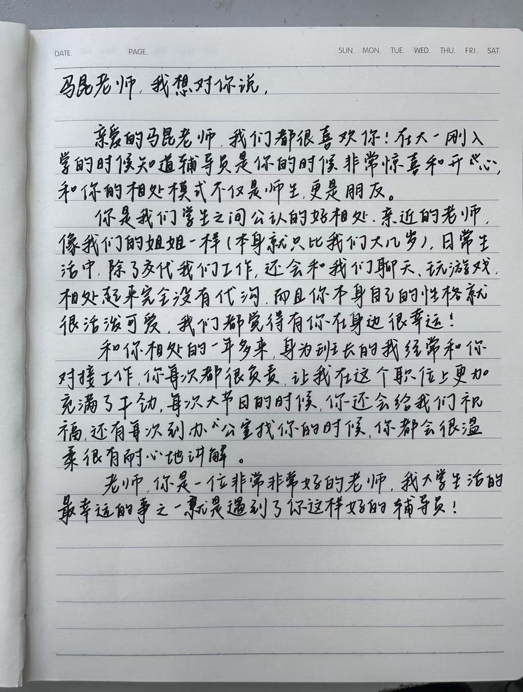 DATE. PAGE. SUN. MON. TUE. WED. THU. FRI. SAT.
马昆老师,我想对你说,
亲爱的马昆老师,我们都很喜欢你!在大一刚入
学的时候知道辅导员是你的时候非常惊喜和开心,
和你的相处模式不仅是师生,更是朋友。
你是我们学生之间公认的好相处、亲近的老师,
像我们的姐姐一样(本身就只比我们大几岁),日常生
活中,除了交代我们工作,还会和我们聊天、玩游戏,
相处起来完全没有代沟,而且你本身自己的性格就
很活泼可爱,我们都觉得有你在身边很幸运!
和你相处的一年多来,身为班长的我经常和你
对接工作,你每次都很负责,让我在这个职位上更加
充满了干劲,每次大节日的时候,你还会给我们祝
福,还有每次到办公室找你的时候,你都会很温
柔很有耐心地讲解。
老师,你是一位非常非常好的老师,我大学生活的
最幸运的事之一就是遇到了你这样好的辅导员!